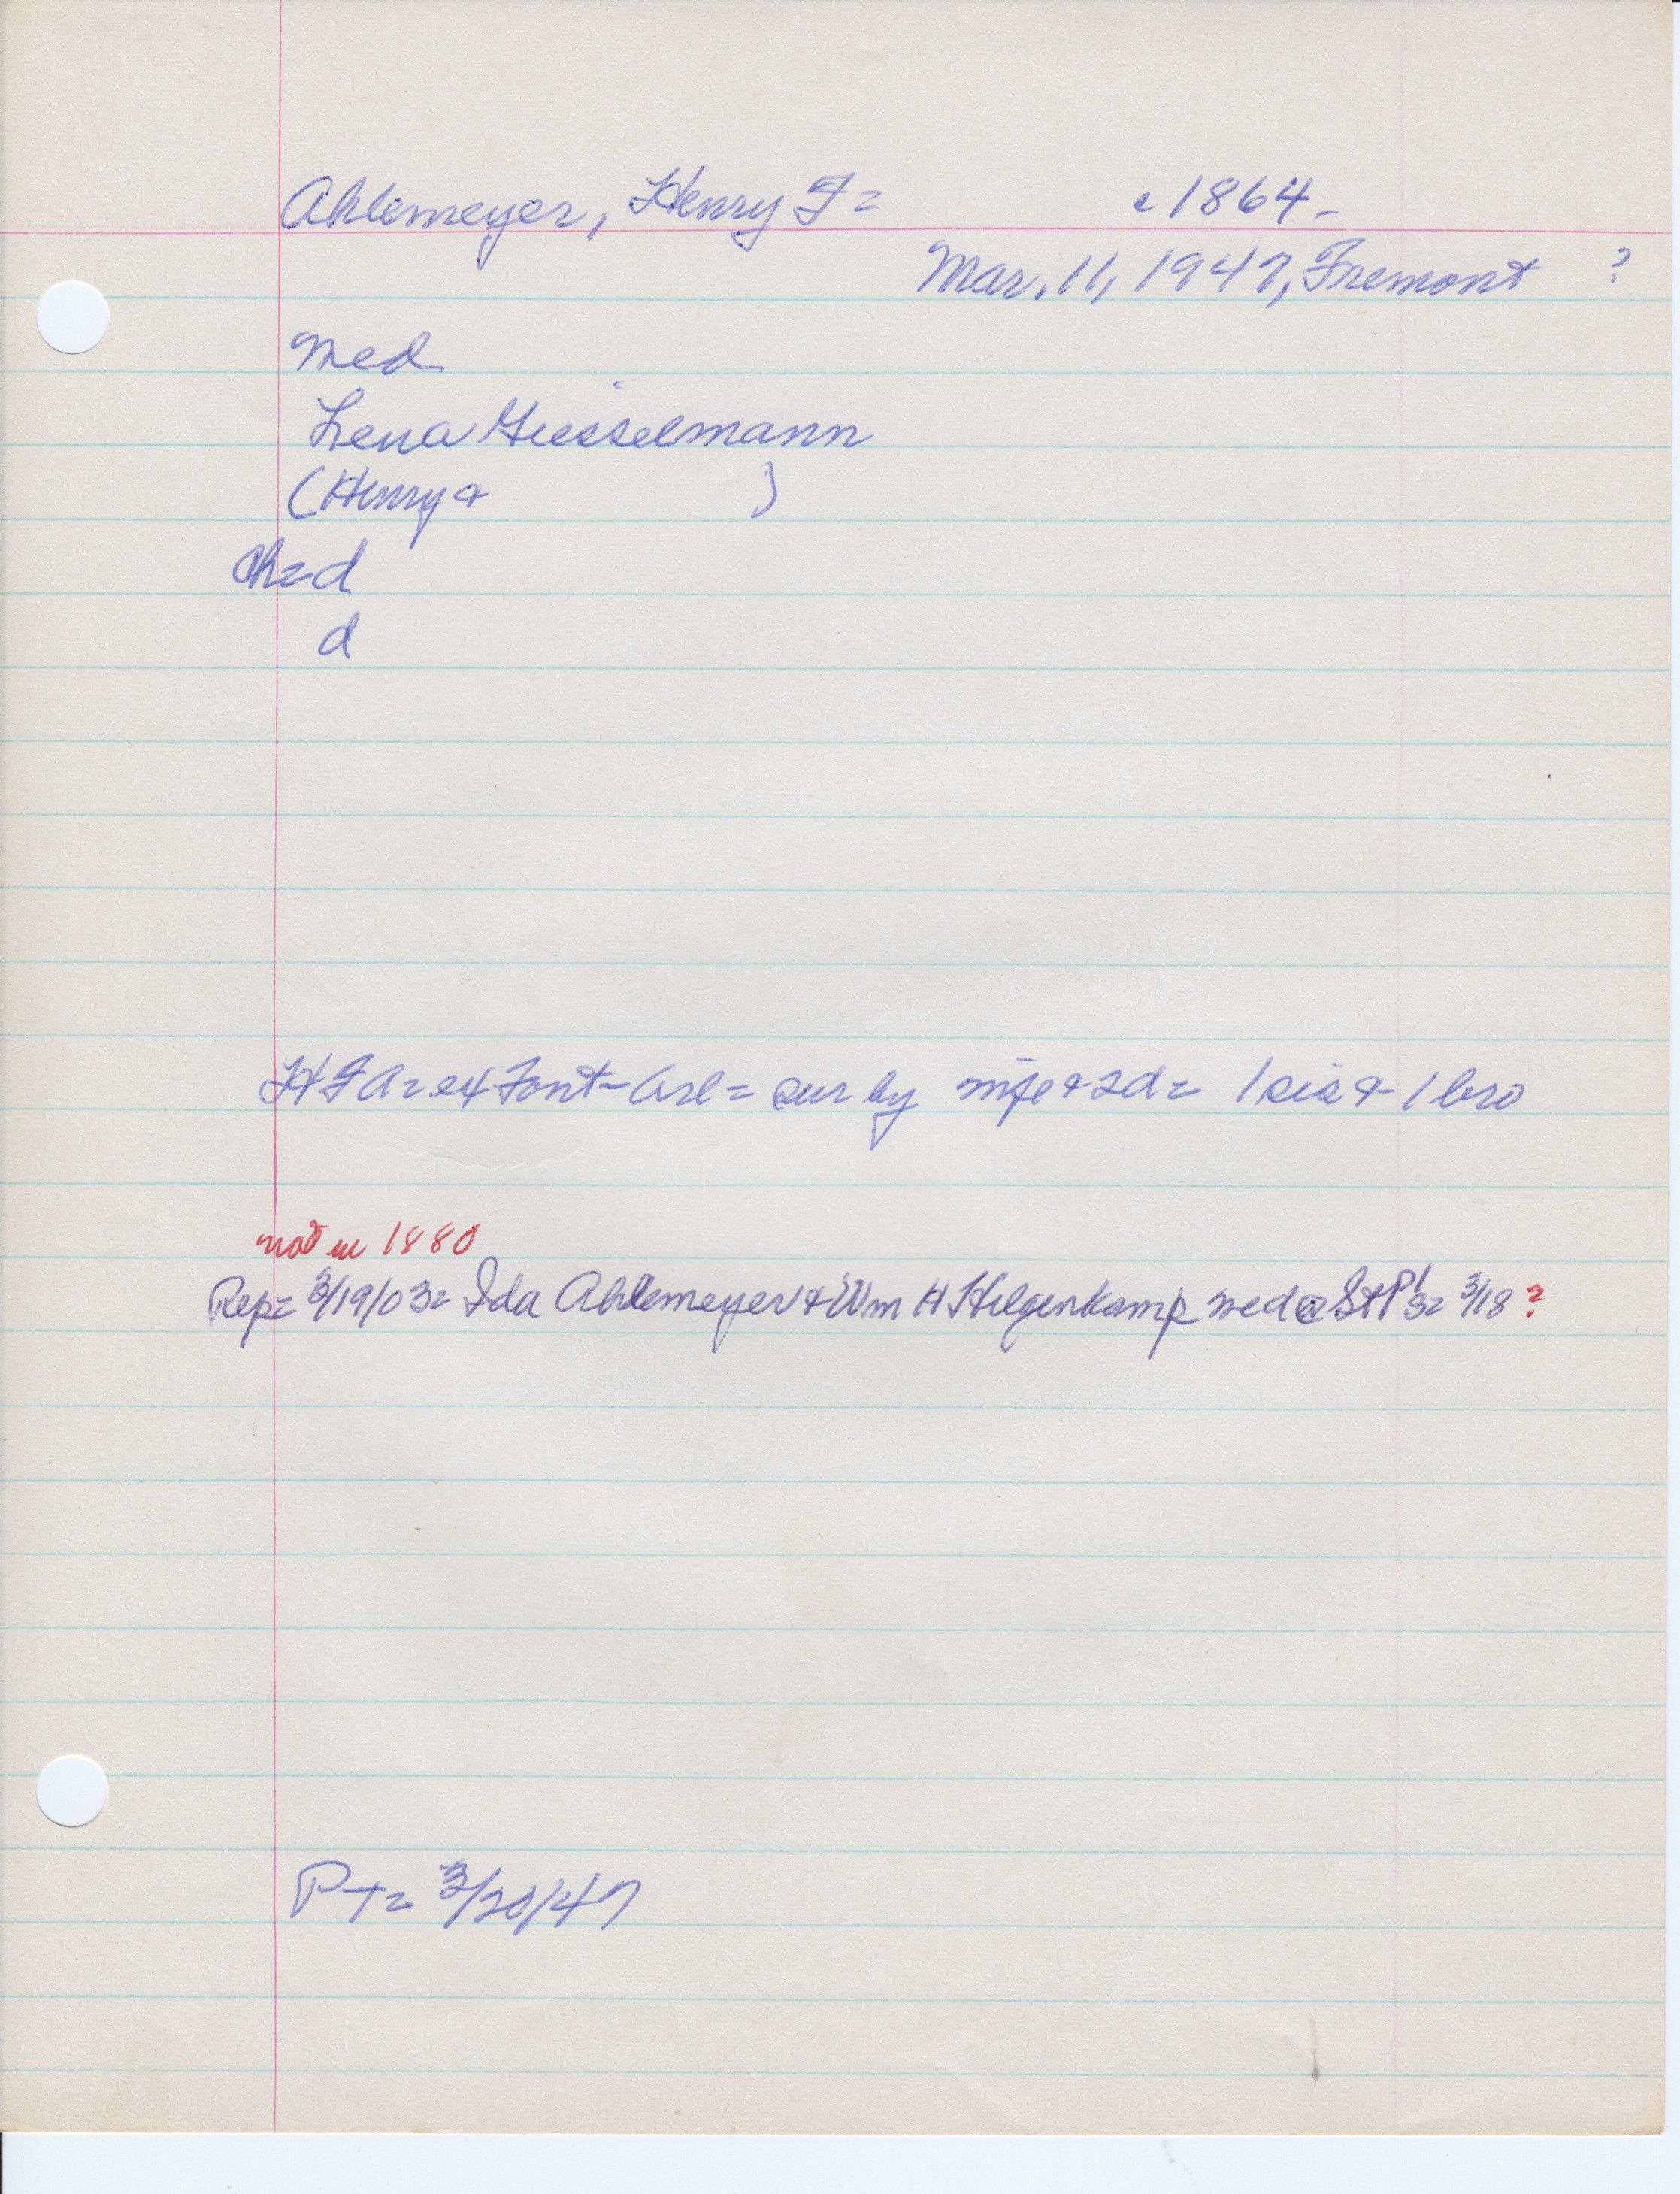 Ahlemeyer, Henry F= c1864-
Mar. 11, 1947, Fremont ?
med
Lena Giesselmann
(Henry & )
Ch= d
d
HFA= ex Font-Arl= sur by wife & 2d= 1 sis & 1 bro
not in 1880
Rep= 3/19/03= Ida Ahlemeyer & Wm H Hilgenkamp med @ St P's= 3/18 ?
PT= 3/20/47